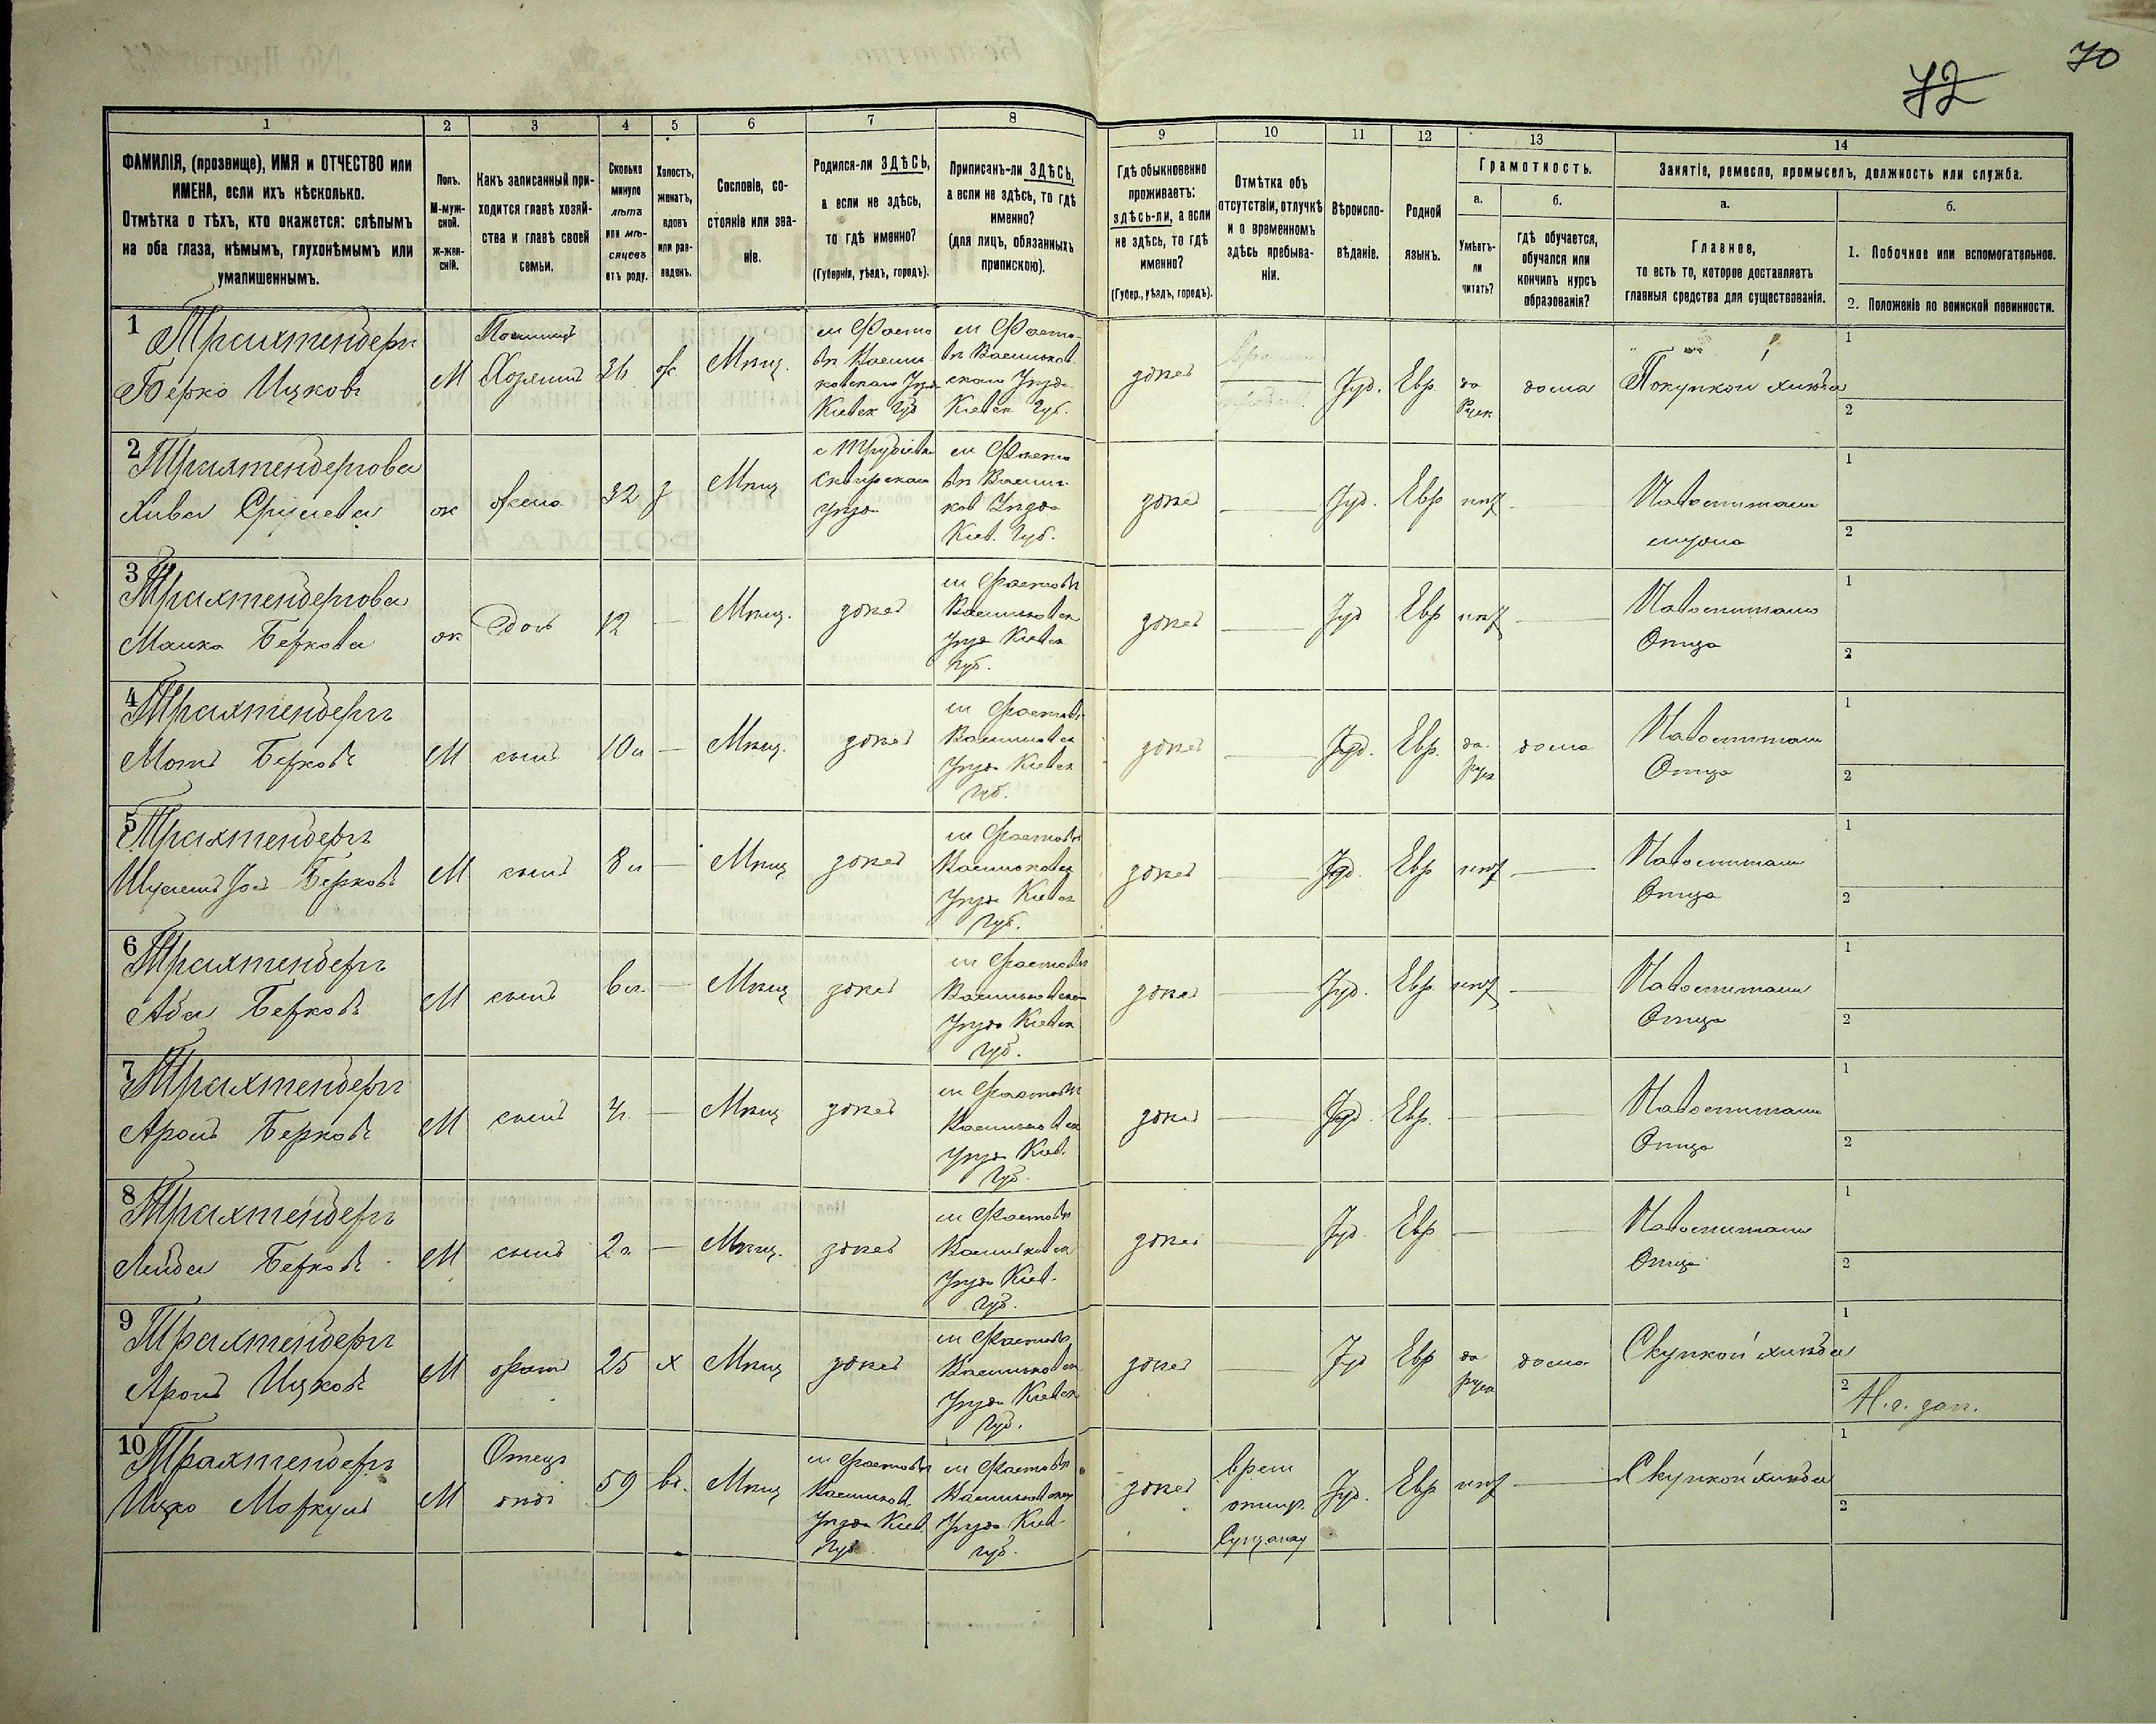 70
72
1 2 3 4 5 6 7 8 9 10 11 12 13 14
ФАМИЛІЯ, (прозвище), ИМЯ и ОТЧЕСТВО или
ИМЕНА, если ихъ нѣсколько.
Отмѣтка о тѣхъ, кто окажется: слѣпымъ
на оба глаза, нѣмымъ, глухонѣмымъ или
умалишеннымъ.
Полъ.
М-муж-
ской.
Ж-жен-
скій.
Какъ записанный при-
ходится главѣ хозяй-
ства и главѣ своей
семьи.
Сколько
минуло
лѣтъ
или мѣ-
сяцевъ
отъ роду.
Холостъ,
женатъ,
вдовъ
или раз-
веденъ.
Сословіе, со-
стояніе или зва-
ніе.
Родился-ли ЗДѢСЬ,
а если не здѣсь,
то гдѣ именно?
(Губернія, уѣздъ, городъ).
Приписанъ-ли ЗДѢСЬ,
а если не здѣсь, то гдѣ
именно?
(для лицъ, обязанныхъ
припискою).
Гдѣ обыкновенно
проживаетъ:
здѣсь-ли, а если
не здѣсь, то гдѣ
именно?
(Губер., уѣздъ, городъ).
Отмѣтка объ
отсутствіи, отлучкѣ
и о временномъ
здѣсь пребыва-
ніи.
Вѣроиспо-
вѣданіе.
Родной
языкъ.
Грамотность.
а.
Умѣетъ-
ли
читать?
б.
гдѣ обучается,
обучался или
кончилъ курсъ
образованія?
Занятіе, ремесло, промыселъ, должность или служба.
а.
Главное,
то есть то, которое доставляетъ
главныя средства для существованія.
б.
1. Побочное или вспомогательное.
2. Положеніе по воинской повинности.
1 Трахтенберг
Берко Ицков
М Хозяинъ ж Мѣщ.
м Фасто
вѣ Васил
ковскаго Уѣзд
Кіевск Губ
м Фасто
вѣ Васильков
скаго Уѣзда
Кіевск Губ.
здѣсь Іуд. Евр да
Руск
дома
1
2
2 Трахтенбергова
жена 32 з Мѣщ
Сквирскаго
Уѣзда
м Фасто
вѣ Василь
ков Уѣзда
Кіев. Губ.
здѣсь Іуд. Евр нѣт
На воспитани
мужа
1
2
3 Трахтенбергова
Беркова
ж дочь 12 Мѣщ. здѣсь
м Фастовѣ
Васильковск
Уѣзд Кіевск
Губ.
здѣсь Іуд Евр нѣт
На воспитани
Отца
1
2
4 Трахтенбергъ
Берковъ
М сынъ 10 л Мѣщ. здѣсь
м Фастовѣ
Васильковск
Уѣзда Кіевск
Губ.
здѣсь Іуд. Евр. да
руск
дома
На воспитани
Отца
1
2
5 Трахтенбергъ
Берковъ
М сынъ 8 л Мѣщ здѣсь
м Фастовѣ
Васильковск
Уѣзда Кіевск
Губ.
здѣсь Іуд. Евр нѣт
На воспитани
Отца
1
2
6 Трахтенбергъ
Аба Берковъ
М сынъ 6 л. Мѣщ здѣсь
м Фастовѣ
Васильковск
Уѣзда Кіевск
Губ.
здѣсь Іуд. Евр нѣт
На воспитани
Отца
1
2
7 Трахтенбергъ
Аронъ Берковъ
М сынъ Мѣщ здѣсь
м Фастовѣ
Васильковск
Уѣзда Кіев.
Губ.
здѣсь Іуд Евр.
На воспитани
Отца
1
2
8 Трахтенбергъ
Лейба Берковъ
М сынъ 2 л Мѣщ. здѣсь
м Фастовѣ
Васильковск
Уѣзда Кіев.
Губ.
здѣсь Іуд. Евр
На воспитани
Отца
1
2
9 Трахтенбергъ
Аронъ Ицковъ
М братъ 25 х Мѣщ здѣсь
м Фастовѣ
Васильковск
Уѣзда Кіевск
Губ.
здѣсь Іуд Евр да
руск
дома
Скупкой хлѣба
1
2
10 Трахтенбергъ
Ицко
М Отецъ
59 вд. Мѣщ
м Фастовѣ
Васильков.
Уѣзда Кіев.
Губ.
м Фастовѣ
Васильковск
Уѣзда Кіев.
Губ.
здѣсь
врем
Іуд. Евр нѣт
Скупкой хлѣба
1
2